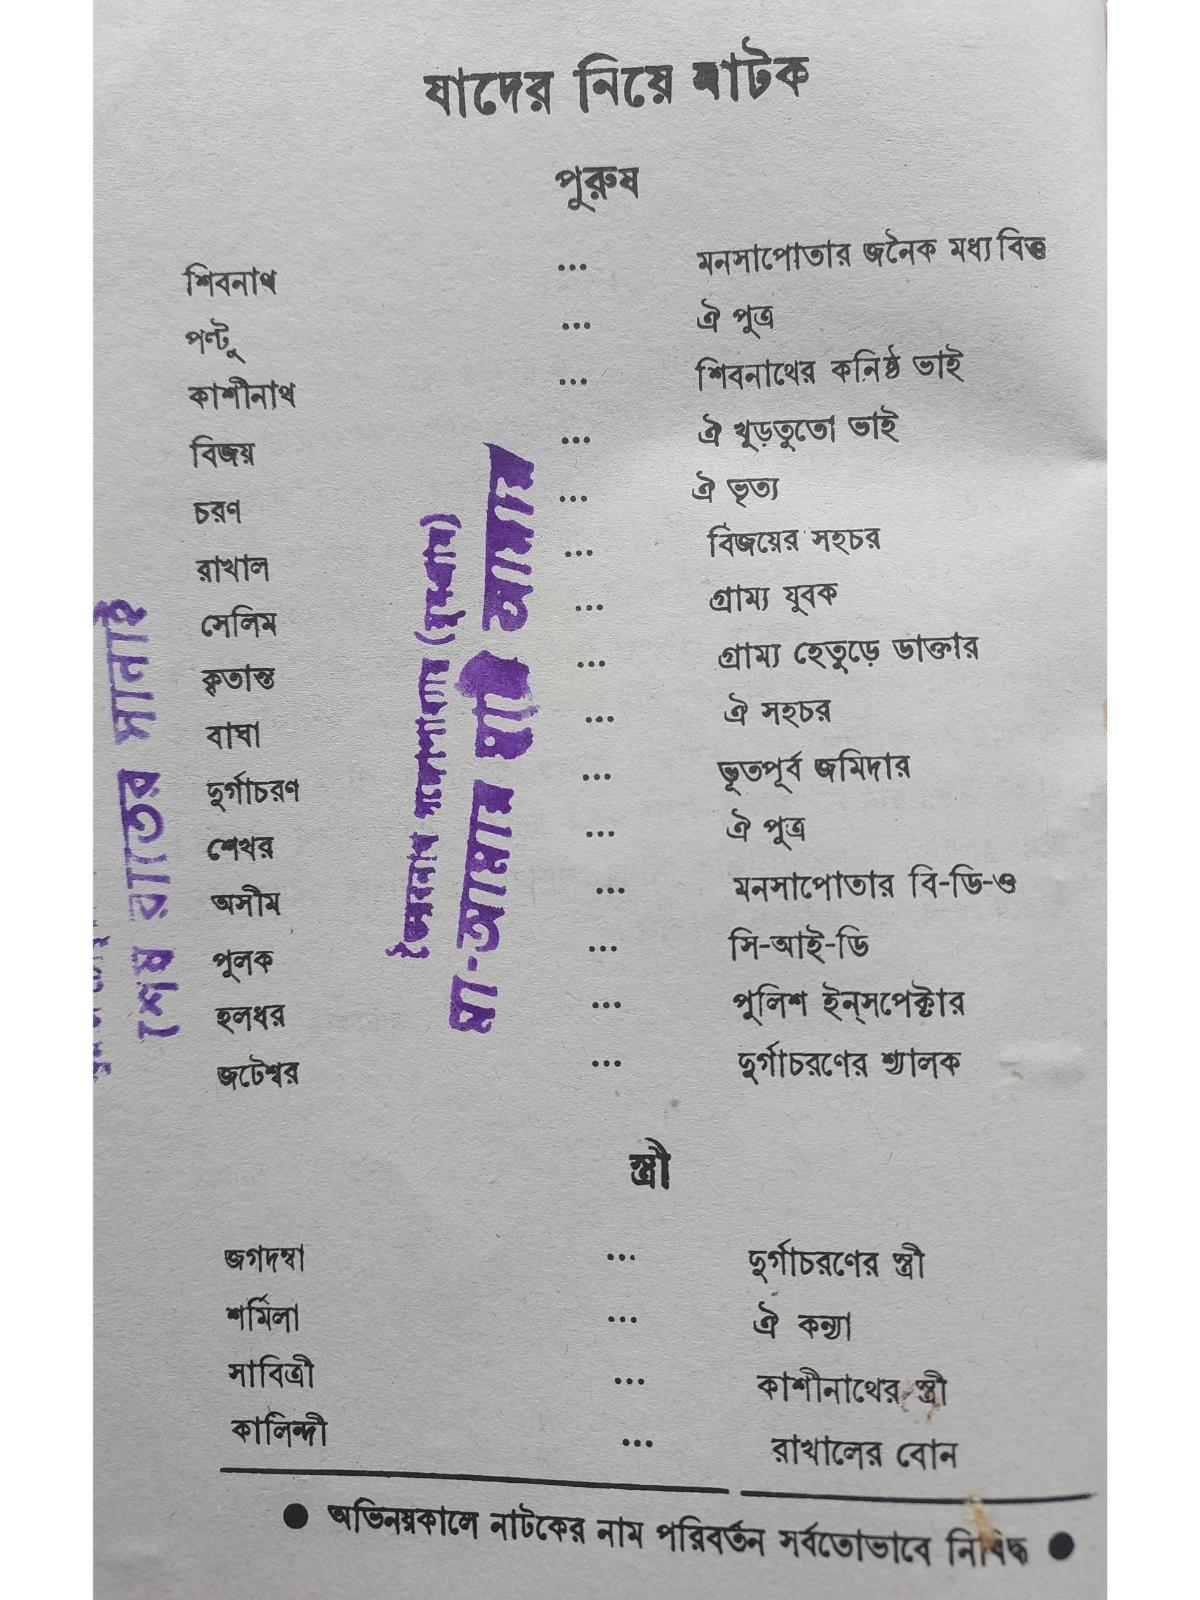 যাদের নিয়ে নাটক
পুরুষ
শিবনাথ ... মনসাপোতার জনৈক মধ্যবিত্ত
পণ্টু ... ঐ পুত্র
কাশীনাথ ... শিবনাথের কনিষ্ঠ ভাই
বিজয় ... ঐ খুড়তুতো ভাই
চরণ ... ঐ ভৃত্য
রাখাল ... বিজয়ের সহচর
সেলিম ... গ্রাম্য যুবক
কৃতান্ত ... গ্রাম্য হেতুড়ে ডাক্তার
বাঘা ... ঐ সহচর
দুর্গাচরণ ... ভূতপূর্ব জমিদার
শেখর ... ঐ পুত্র
অসীম ... মনসাপোতার বি-ডি-ও
পুলক ... সি-আই-ডি
হলধর ... পুলিশ ইন্‌সপেক্টার
জটেশ্বর ... দুর্গাচরণের শ্যালক
স্ত্রী
জগদম্বা ... দুর্গাচরণের স্ত্রী
শর্মিলা ... ঐ কন্যা
সাবিত্রী ... কাশীনাথের স্ত্রী
কালিন্দী ... রাখালের বোন
● অভিনয়কালে নাটকের নাম পরিবর্তন সর্বতোভাবে নিষিদ্ধ ●
শেষ রাতের সানাই
ভৈরবনাথ গঙ্গোপাধ্যায়
মা-আমার মাটি আমার